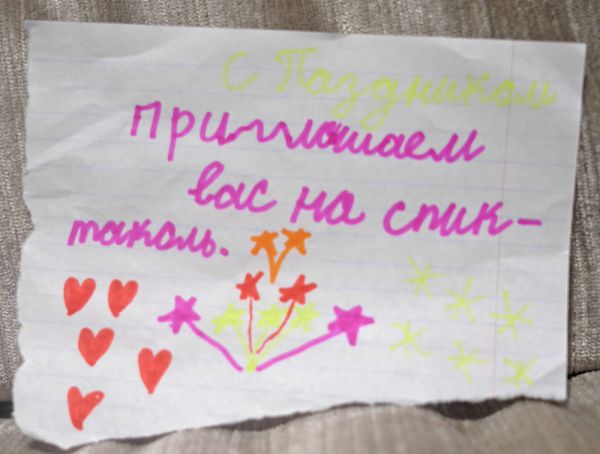 С Паздником
Приглошаем
вас на спик-
таколь.